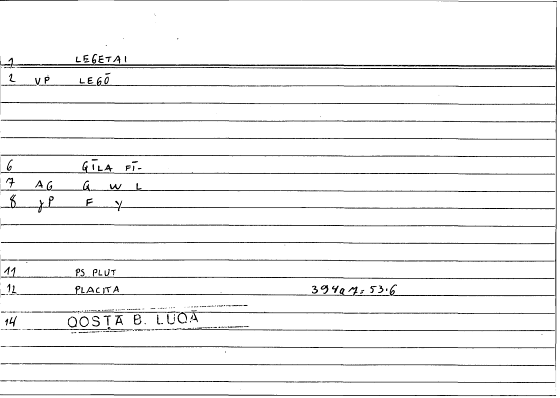 1 LEGETAI
2 VP LEGŌ
6 GĪLA FĪ-
7 AG G W L
8 γP F Y
11 PS PLUT
12 PLACITA 394a7=53.6
14 OOSTĀ B. LUOĀ